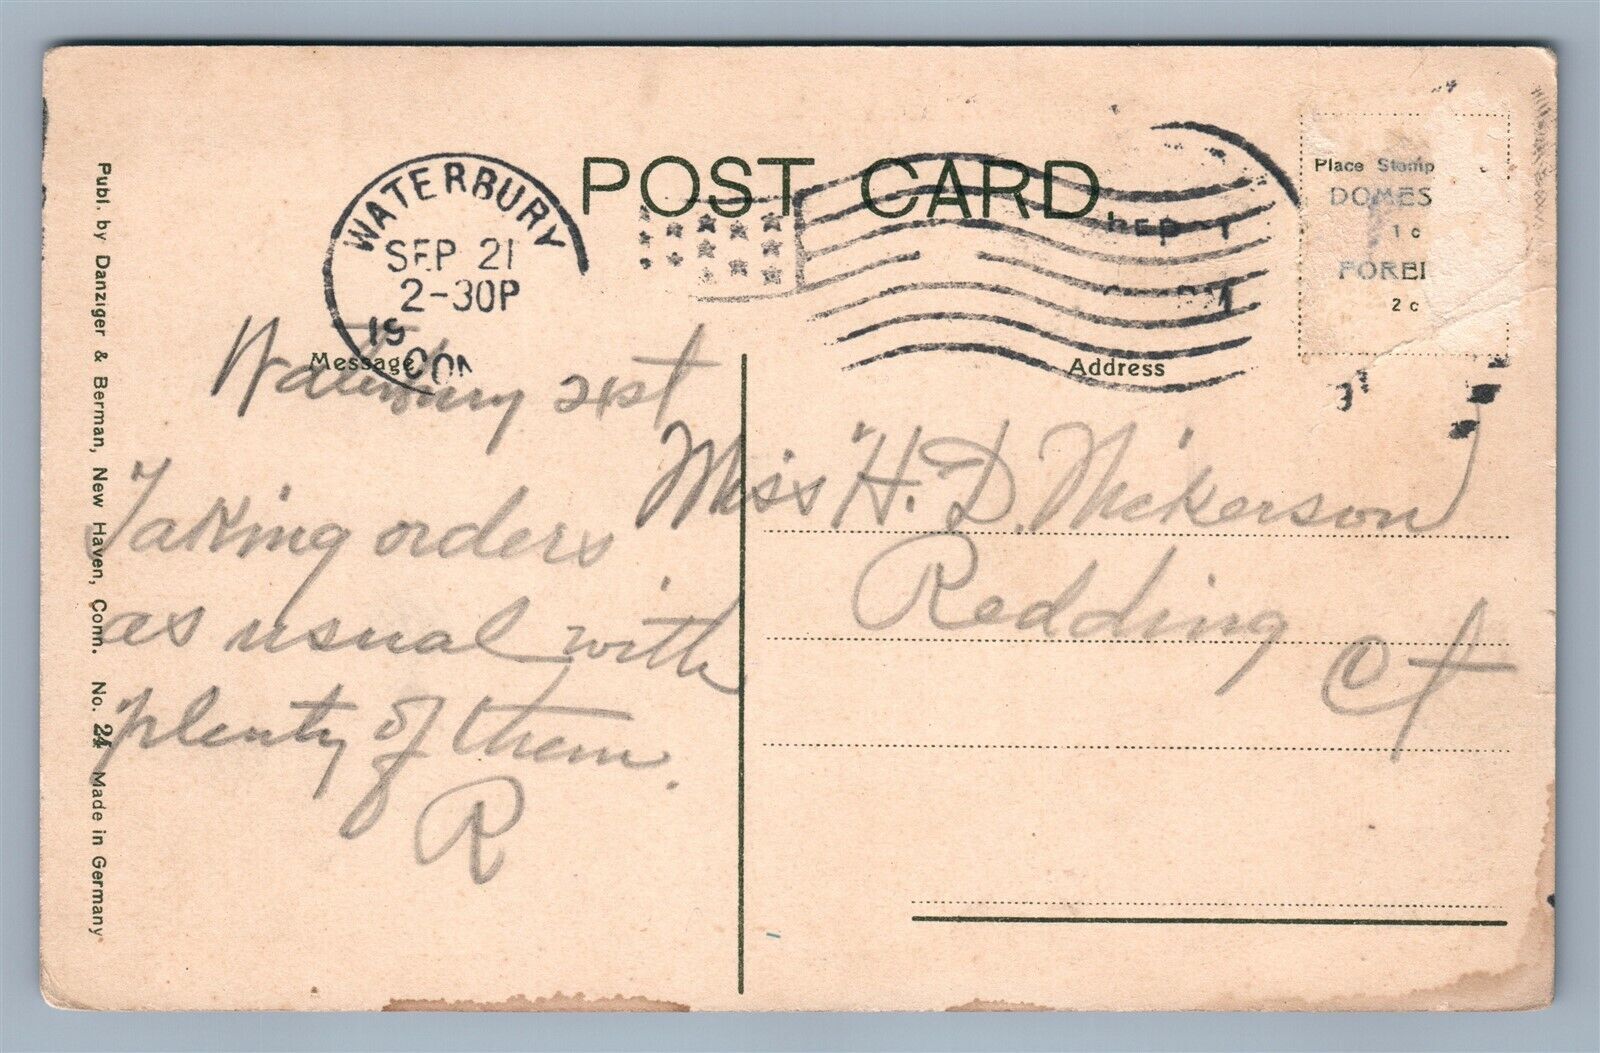 POST CARD.
WATERBURY
SEP 21
2-30P
19
CON
SEP 21
Place Stamp
DOMES
1 c
FOREI
2 c
Message
Address
Waterbury 21st
Taking orders
as usual with
plenty of them.
R
Miss H. D. Nickerson
Redding
Ct
Publ. by Danziger & Berman, New Haven, Conn. No. 24 Made in Germany